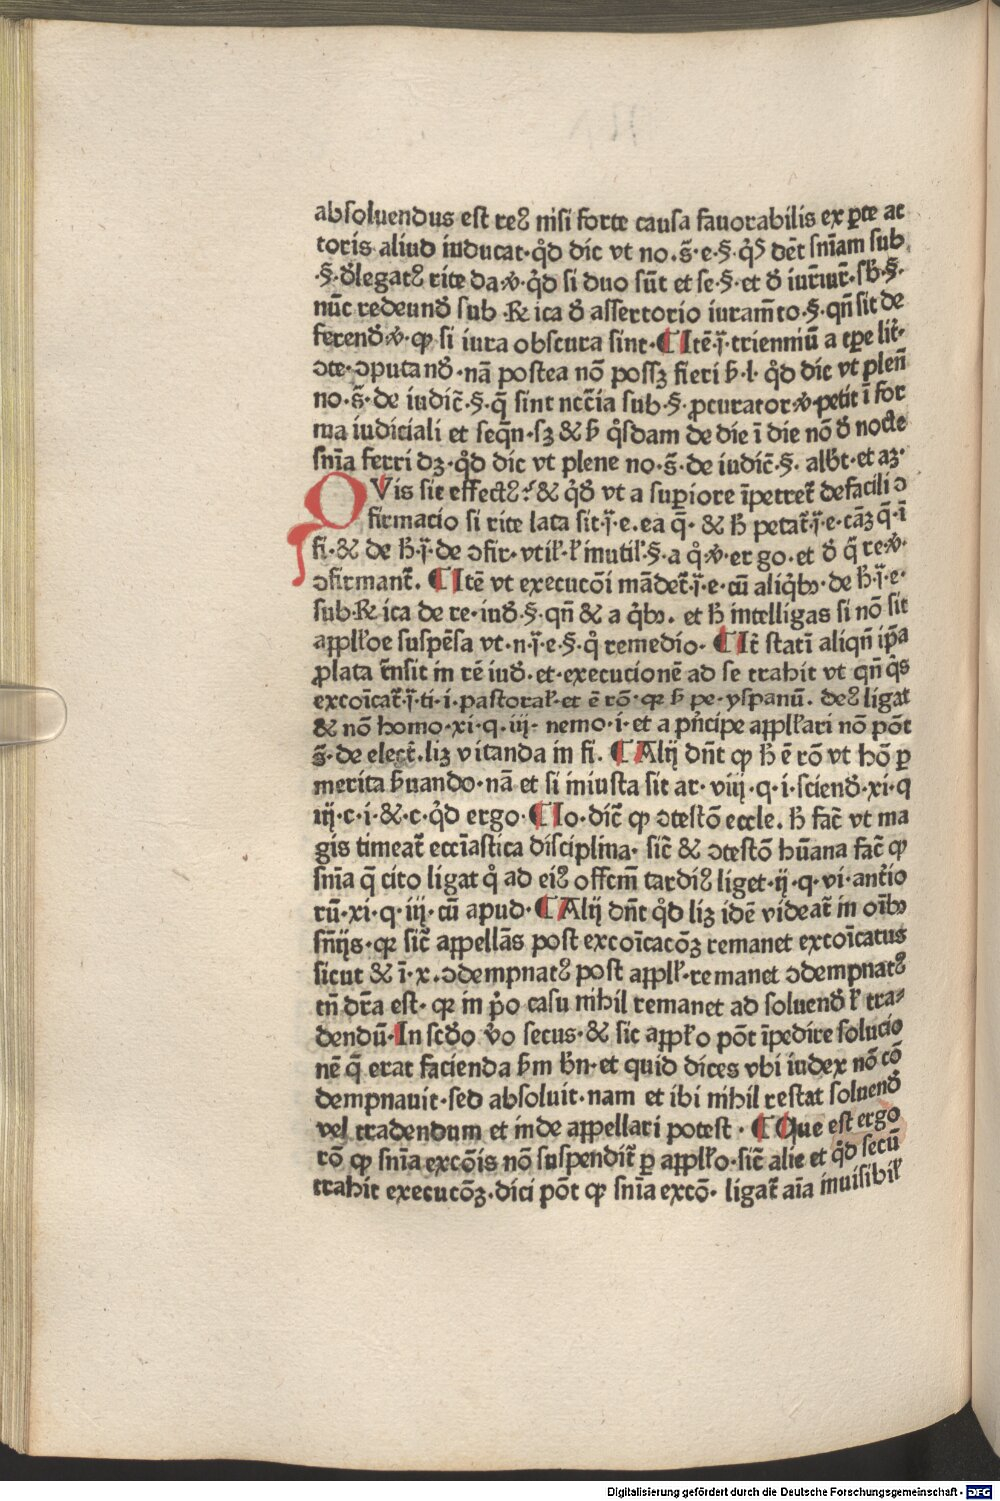 absoluendus est reꝰ nisi forte causa fauorabilis ex ꝑte ac
toris aliud inducat·qd̓ dic vt no.s̄·e·§·qꝭ dēt sn̄iam sub
·§·d̓legatꝰ rite da·v̓·qd̓ si duo sūt et se·§·et d̓ iur̄iur̄·sb̓·§·
nūc redeund̓ sub ·℞ica d̓ assertorio iuram̄to·§·qn̄ sit de
ferend̓·v̓·ꝙ si iura obscura sint·¶Itē·j̄·trienniū a tꝑe lit̄·
ↄte·ↄputand̓·nā postea nō possꝫ fieri h̄·l·qd̓ dic vt plen̄
no·s̄·de iudic̄·§·q̄ sint ncc̄ia sub·§·ꝓcurator·v̓·petit ī for
ma iudiciali et seqn̄·sꝫ & h̄ qͥsdam de die ī die nō d̓ nocte
sn̄ia ferri dꝫ·qd̓ dic vt plene no·s̄·de iudic̄·§·alb̄t·et aꝫ·
QVis sit effectꝰ? & qd̓ vt a suꝑiore īpetret̄ de facili ↄ
firmacio si rite lata sit·j̄·e·ea q̄· & h̄ petat̄·j̄·e·cāꝫ q̄·ī
fi·& de h̄·j̄·de ↄfir·vtil̓·l̓ inutil̓·§·a qͦ·v̓·ergo·et d̓ q̄ re·v̓·
ↄfirmant̄. ¶Itē vt execucōi mādet̄·j̄·e·cū aliqͥbꝫ·de h̄·j̄·e·
sub ℞ica de re·iud̓·§·qn̄ & a qͥbꝫ. et h̄ intelligas si nō sit
appl̓loe suspēsa vt·n·j̄·e·§·qͦ remedio· ¶It̄ statī aliqn̄ ip̄a
ꝓlata t̄nsit in rē iud̓·et·execucionē ad se trahit vt qn̄ qͥs
excoīcat̄·j̄·ti·i·pastoral̓·et ē rō·qꝛ h̄ pe·yspanū. deꝰ ligat
& nō homo·xi·q·iij· nemo·i·et a pͥncipe appl̓lari nō pōt
s̄·de elect̄.liꝫ vitanda in fi. ¶Alij dn̄t ꝙ h̄ ē rō vt hō ꝑ
merita h̄uando·nā et si iniusta sit ar·viij·q·i·sciend̓·xi·q
iij·c·i·&·c·qd̓ ergo·¶Io·dic̄ ꝙ ↄtestō eccle. h̄ fac̄ vt ma
gis timeat̄ eccīastica disciplina· sic̄ & ↄtestō hūana fac̄ ꝙ
sn̄ia q̄ cito ligat qͦ ad eiꝰ offcm̄ tardiꝰ liget·ij·q·vi·antͥio
rū·xi·q·iij·cū apud·¶Alij dn̄t qd̓ liꝫ idē videat̄ in oībꝫ
sn̄ijs·qꝛ sic̄ appellās post excoīcacōꝫ remanet excoīcatus
sicut & ī·x·ↄdempnatꝰ post appl̓l·remanet ↄdempnatꝰ
tn̄ dr̄a est·qꝛ in pͥo casu nihil remanet ad soluend̓ l̓ tra⸗
dendū·In scd̓o v̓o secus·& sic appl̓o pōt īpedire solucio
nē q̄ erat facienda h̄m h̄n·et quid dices vbi iudex nō cō
dempnauit·sed absoluit·nam et ibi nihil restat soluend̓
vel tradendum et inde appellari potest · ¶Que est ergo
rō ꝙ sn̄ia excōis nō suspendit̄ ꝑ appl̓lo·sic̄ alie et qd̓ secū
trahit execucōꝫ·dici pōt ꝙ sn̄ia excō· ligat̄ aīa inuisibil̓
Digitalisierung gefördert durch die Deutsche Forschungsgemeinschaft - DFG